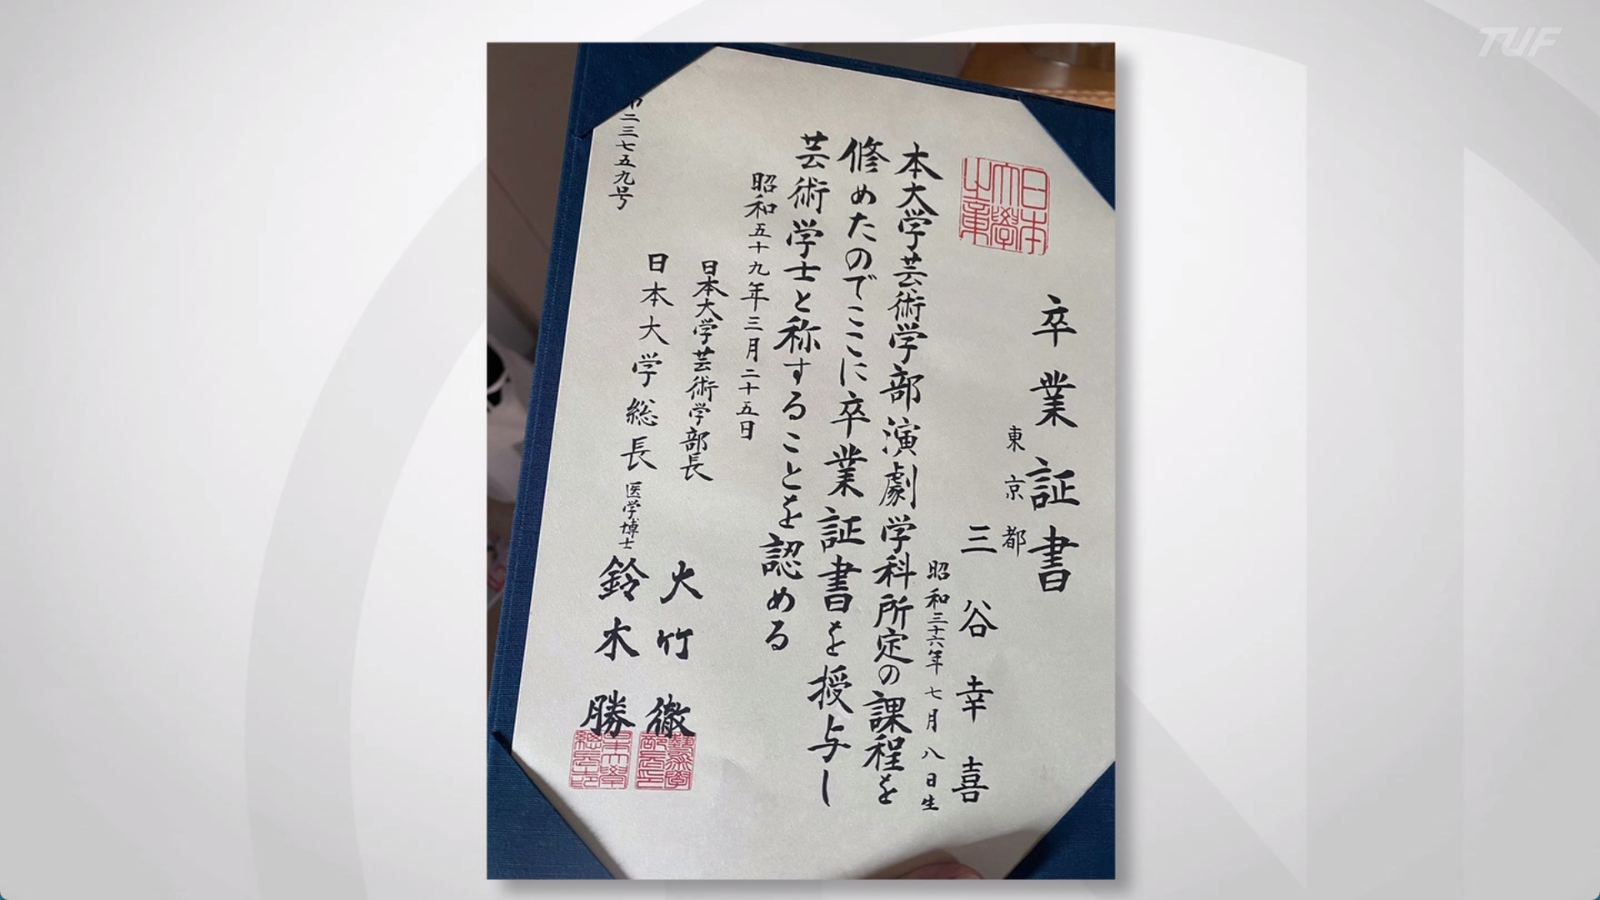 TUF
日本大學之章
卒業証書
東京都
三谷幸喜
昭和三十六年七月八日生
本大学芸術学部演劇学科所定の課程を
修めたのでここに卒業証書を授与し
芸術学士と称することを認める
昭和五十九年三月二十五日
日本大学芸術学部長
大竹徹
日本大学総長
医学博士
鈴木勝
二三七五九号